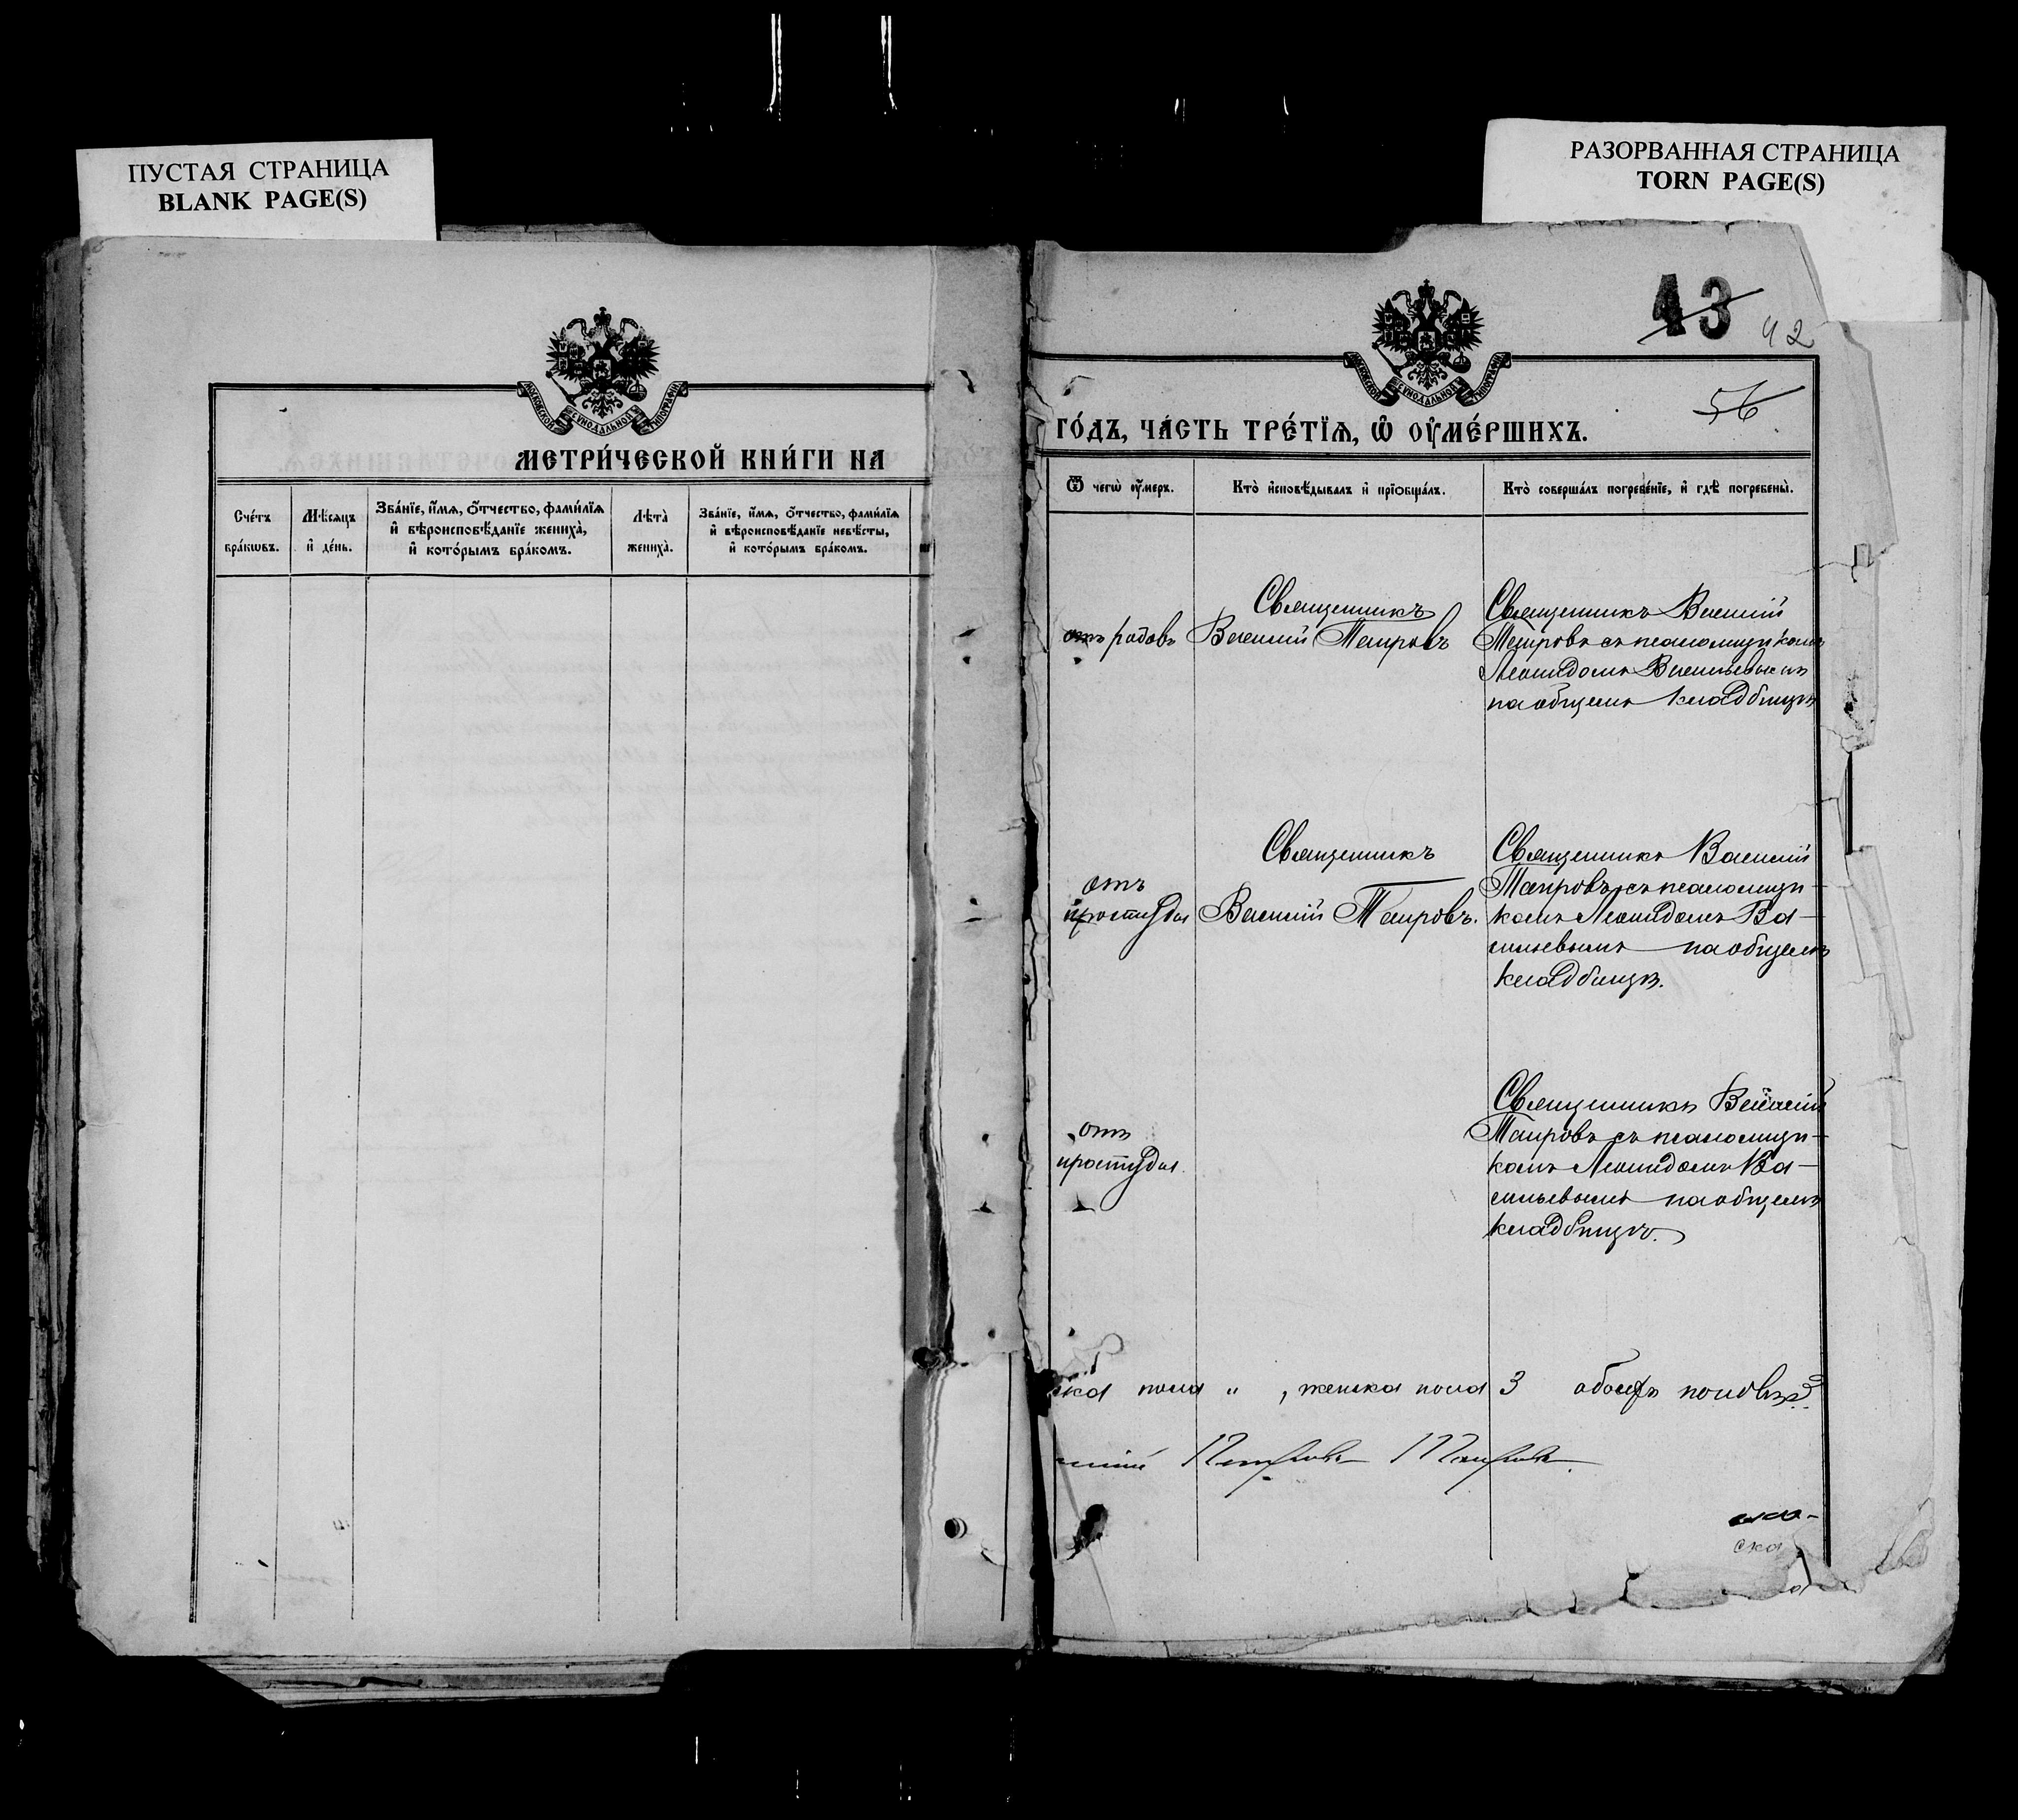 ПУСТАЯ СТРАНИЦА
BLANK PAGE(S)
РАЗОРВАННАЯ СТРАНИЦА
TORN PAGE(S)
МОСКОВСКОЙ СѴНОДАЛЬНОЙ ТИПОГРАФІИ
МЕТРИ́ЧЕСКОЙ КНИ́ГИ НА
Сче́тъ бра́кѡвъ.
Мѣ́сяцъ и҆ де́нь.
Зва́нїе, и҆́мѧ, ѻ҆́тчество, фами́лїѧ
и҆ вѣроисповѣ́данїе жениха̀,
и҆ кото́рымъ бра́комъ.
Лѣта̀ жениха̀.
Зва́нїе, и҆́мѧ, ѻ҆́тчество, фами́лїѧ
и҆ вѣроисповѣ́данїе невѣ́сты,
и҆ кото́рымъ бра́комъ.
43
42
56
МОСКОВСКОЙ СѴНОДАЛЬНОЙ ТИПОГРАФІИ
ГО́ДЪ, ЧА́СТЬ ТРЕ́ТЇѦ, Ѡ҆ ОУ҆МЕ́РШИХЪ.
Ѿ чегѡ̀ оу҆́меръ.
Кто̀ и҆сповѣ́дывалъ и҆ прїѡбща́лъ.
Кто̀ соверша́лъ погребе́нїе, и҆ гдѣ̀ погребены̀.
отъ родовъ
Священникъ
Василій Таировъ
Священникъ Василій
Таировъ съ псаломщикомъ
Леонидомъ Васильевымъ
на общемъ кладбищѣ
отъ
простуды
Священникъ
Василій Таировъ.
Священникъ Василій
Таировъ съ псаломщи-
комъ Леонидомъ Ва-
сильевымъ на общемъ
кладбищѣ.
отъ
простуды
Священникъ Василій
Таировъ съ псаломщи-
комъ Леонидомъ Ва-
сильевымъ на общемъ
кладбищѣ.
ска пола " , женска пола 3 обоихъ половъ 3.
силій Петровъ Таировъ.
ска